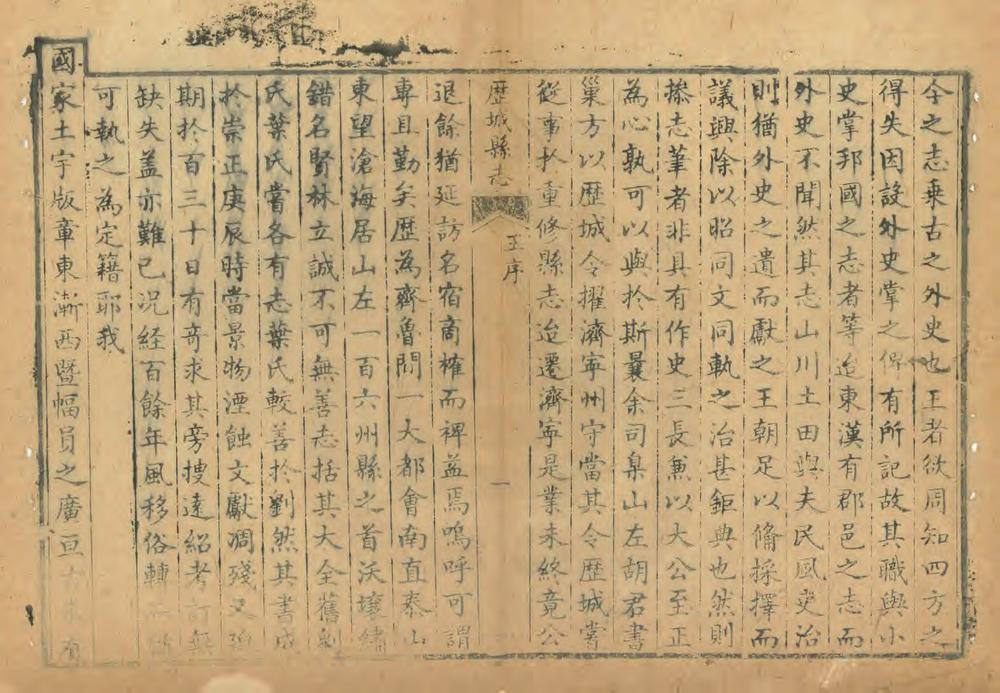 今之志乗古之外史也王者欲周知四方之
得失因設外史掌之俾有所記故其職與小
史掌邦國之志者等迨東漢有郡邑之志而
外史不聞然其志山川土田與夫民風吏治
則猶外史之遺而獻之王朝足以脩採擇而
議興除以昭同文同軌之治甚鉅典也然則
搽志筆者非具有作史三長兼以大公至正
為心孰可以與於斯曩余司臬山左胡君書
巢方以歴城令擢濟寜州守當其令歴城嘗
從事扵重修縣志迨遷濟寜是業未終竟公
歴城縣志
王序
一
退餘猶延訪名宿商榷而裨益焉嗚呼可謂
專且勤矣歴為齊魯間一大都會南直泰山
東望滄海居山左一百六州縣之首沃壌繡
錯名賢林立誠不可無善志括其大全舊劉
氏葉氏嘗各有志葉氏較善於劉然其書成
扵崇正庚辰時當景物湮蝕文獻凋殘又殆
期扵百三十日有竒求其旁搜逺紹考訂無
缺失盖亦難已况経百餘年風移俗轉
可執之為定籍耶我
國家土宇版章東漸西曁幅員之廣亘古未有